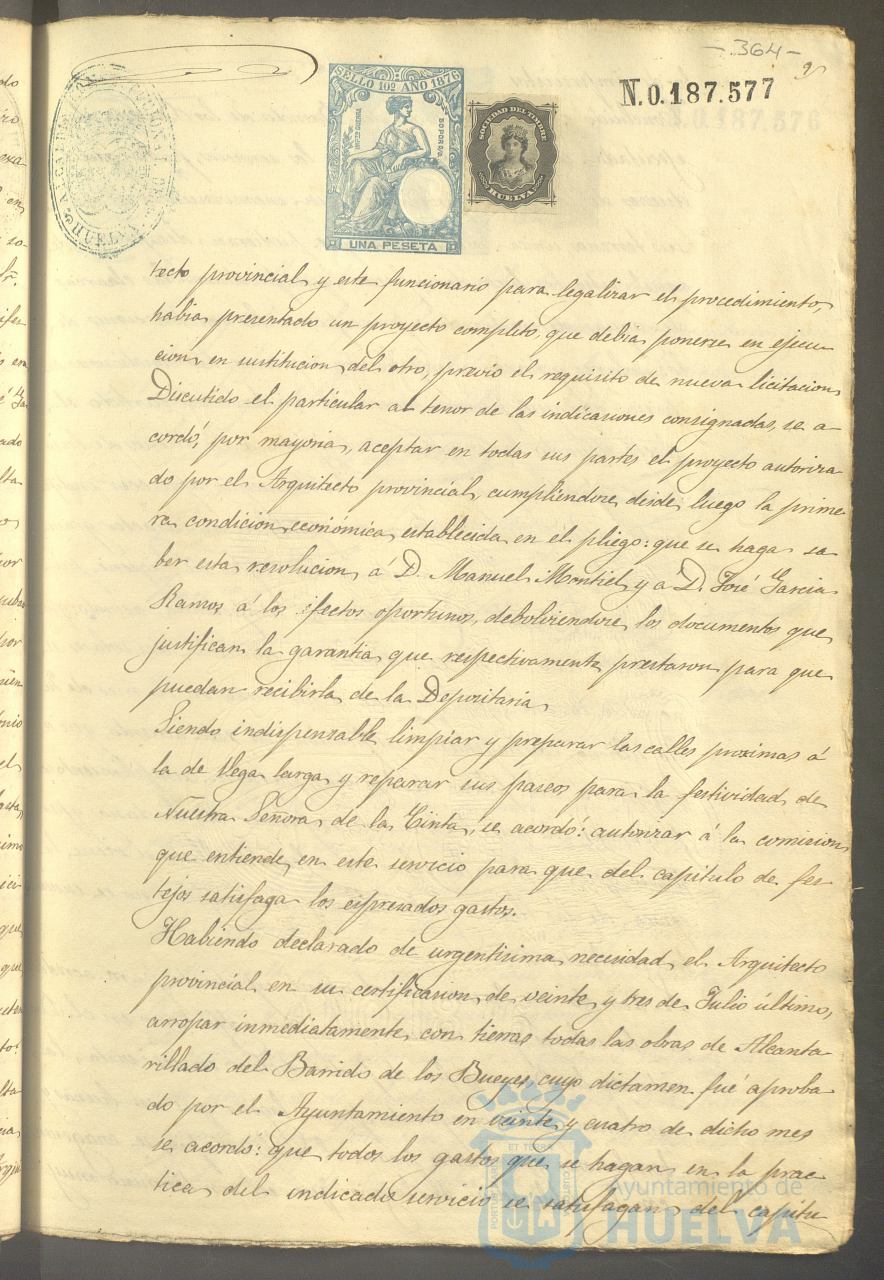 -364-
N.0.187.577
SELLO 10º AÑO 1876
UNA PESETA
SOCIEDAD DEL TIMBRE
HUELVA
HUELVA
tecto provincial y este funcionario para legalizar el procedimiento,
habia presentado un proyecto completo, que debia ponerse en ejecu
cion en sustitucion del otro, previo el requisito de nueva licitacion
Discutido el particular al tenor de las indicasiones consignadas, se a-
cordó, por mayoria, aceptar en todas sus partes el proyecto autoriza
do por el Arquitecto provincial, cumpliendose desde luego la prime
ra condicion económica establecida en el pliego: que se haga sa
ber esta resolucion á D. Manuel Montiel y a D. José Garcia
Ramos á los efectos oportunos, debolviendose los documentos que
justifican la garantia que respectivamente prestaron para que
puedan recibirla de la Depositaria
Siendo indispensable limpiar y preparar las calles proximas á
la de Vega larga y reparar sus paseos para la festividad de
Nuestra Señora de la Cinta, se acordó: autorizar á la comision
que entiende en este servicio para que del capitulo de fes
tejos satisfaga los espresados gastos.
Habiendo declarado de urgentisima necesidad el Arquitecto
provincial en su certificasion de veinte y tres de Julio último,
arropar inmediatamente con tierras todas las obras de Alcanta
rillado del Barrido de los Bueyes, cuyo dictamen fué aproba
do por el Ayuntamiento en veinte y cuatro de dicho mes
se acordó: que todos los gastos que se hagan en la prac
tica del indicado servicio se satisfagan del capitu
Ayuntamiento de
HUELVA